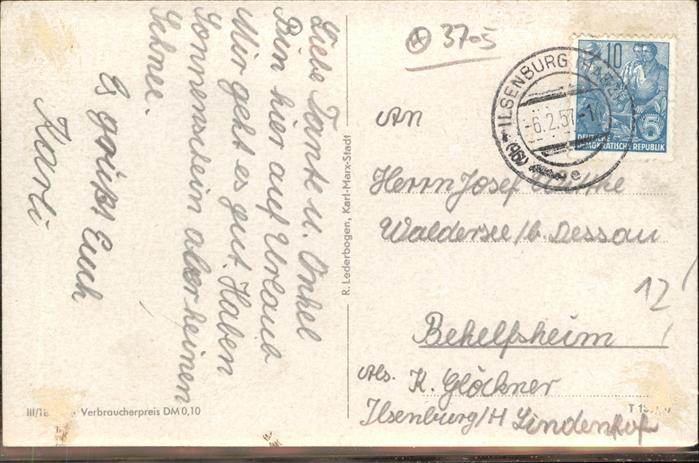 Liebe Tante u. Onkel
Bin hier auf Urlaub
Mir geht es gut. Haben
Sonnenschein aber keinen
Schnee.
Es grüßt Euch
Karli
III/18 Verbraucherpreis DM 0,10
R. Lederbogen, Karl-Marx-Stadt
A 3705
ILSENBURG (HARZ)
-6.2.57-1
10
DEUTSCHE
DEMOKRATISCHE REPUBLIK
5
An
Herrn Josef
Waldersee/b. Dessau
12
Behelfsheim
Abs. K. Glöckner
Ilsenburg/H Lindenhof